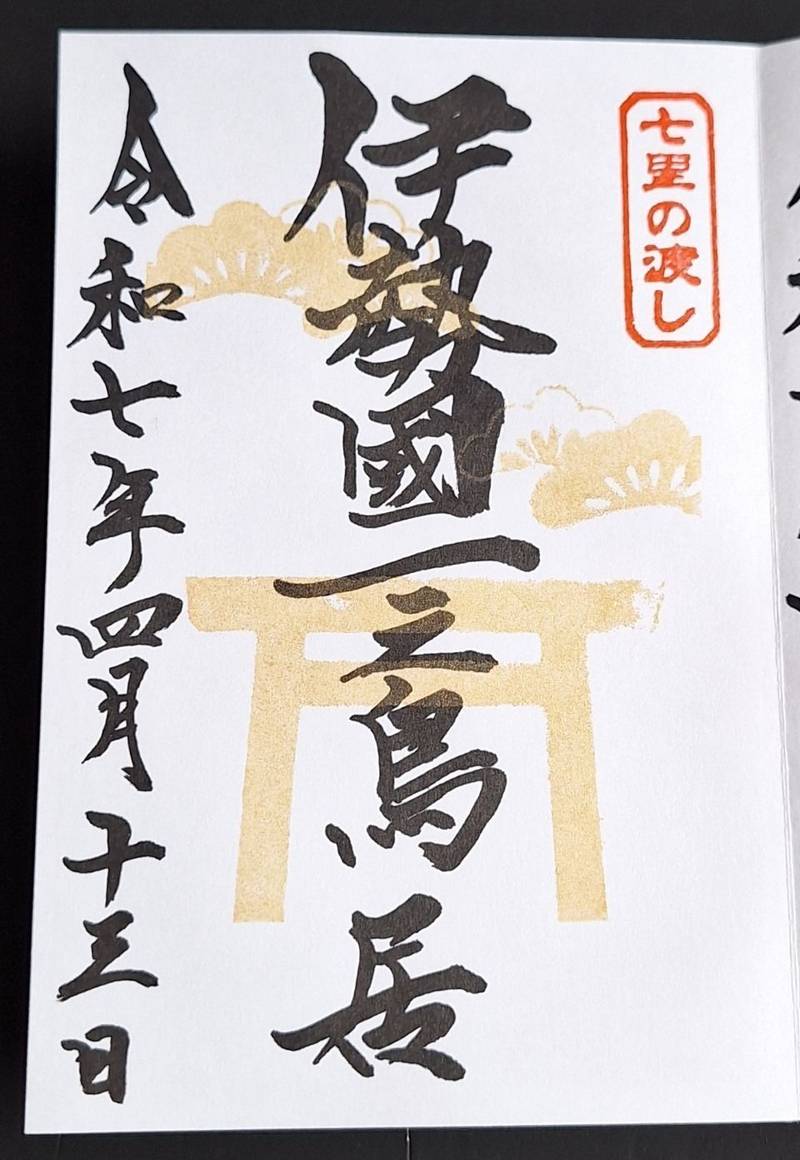 七里の渡し
伊勢國一之鳥居
令和七年四月十三日